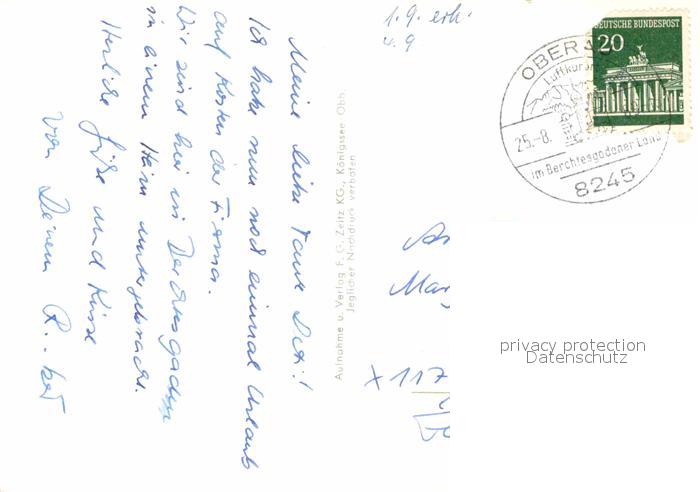 Meine liebe Tante Deti!
Ich habe nun noch einmal Urlaub
auf Kosten der Firma.
Wir sind hier in Berchtesgaden
in einem Heim untergebracht.
Herzliche Grüße und Küsse
von Deinem
Aufnahme u. Verlag F. G. Zeitz KG., Königssee Obb.
Jeglicher Nachdruck verboten
1.9. erh.
DEUTSCHE BUNDESPOST
20
OBERAU
Luftkurort
25.-8.
im Berchtesgadener Land
8245
An
Mar
x 117
privacy protection
Datenschutz